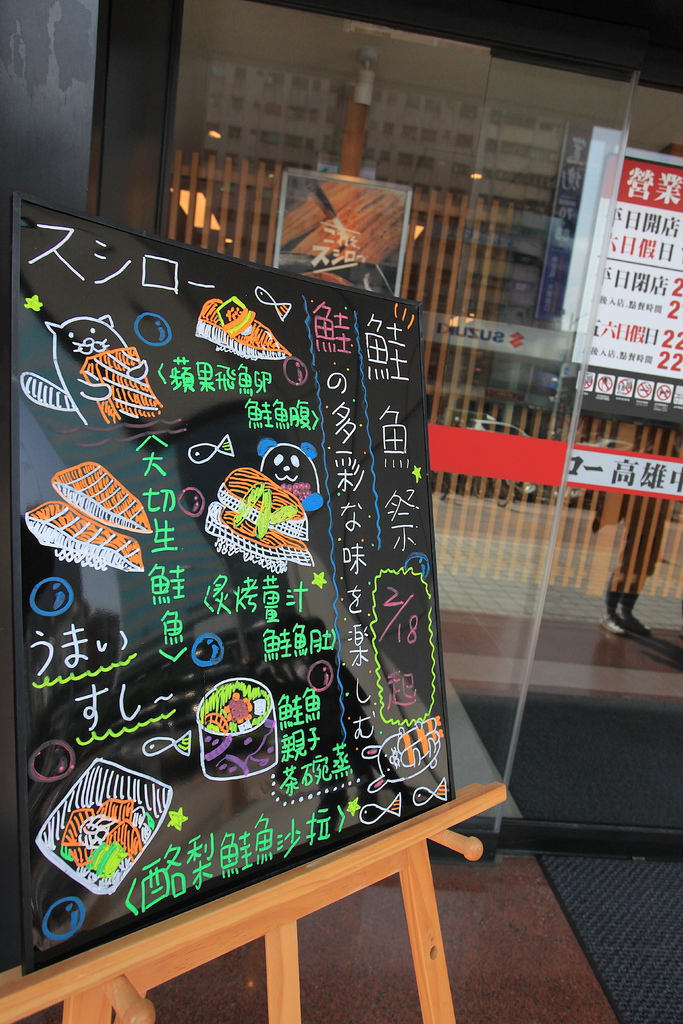 スシロー
鮭魚祭
2/18起
鮭の多彩な味を楽しむ
〈蘋果飛魚卵
鮭魚腹〉
〈大切生鮭魚〉
〈炙烤薑汁
鮭魚肚〉
うまい
すし～
鮭魚
親子
茶碗蒸
〈酪梨鮭魚沙拉〉
スシロー
SUZUKI
営業
平日開店
六日假日
平日閉店 2
後入店、點餐時間 2
五六日假日 22
後入店、點餐時間 22
ロー 高雄中